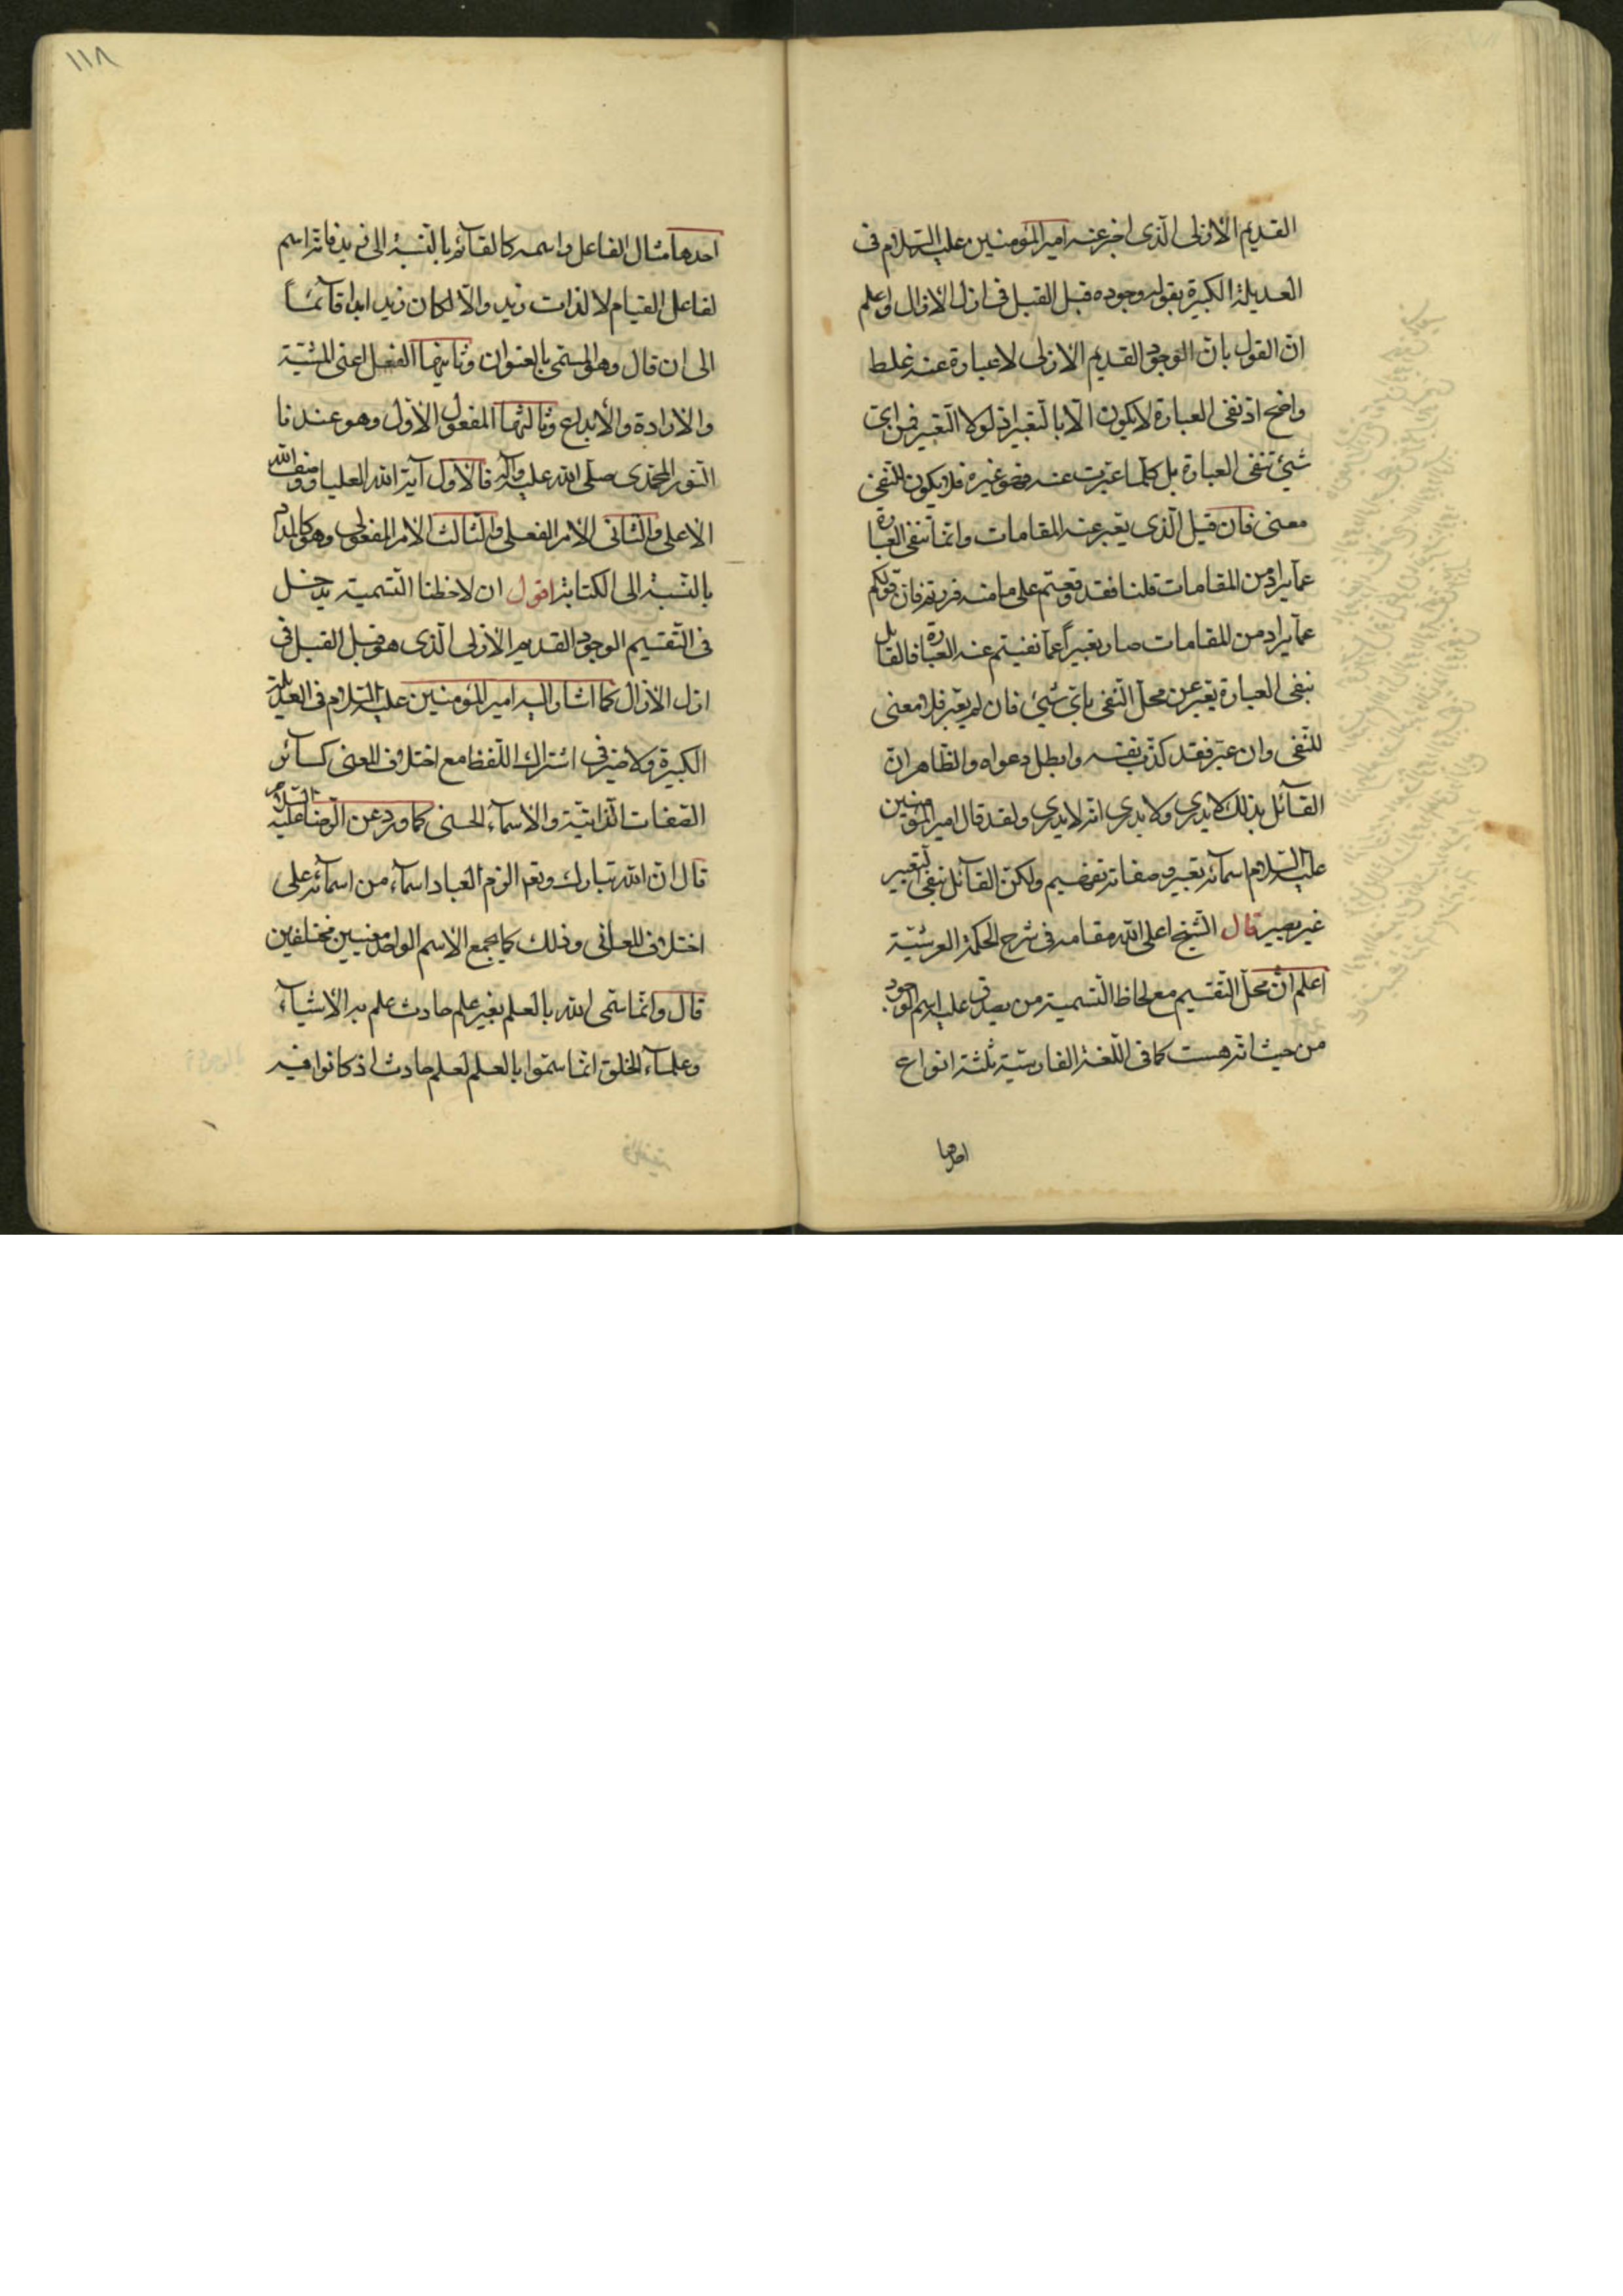 القديم الأزلى الذى اخبر عنه امير المؤمنين عليه السلام فى
العديلة الكبيرة بقوله وجوده قبل القبل فى ازل الآزال اعلم
ان القول بان الوجود القديم الازلى لا عبارة عنه غلط
واضح اذ نفى العبارة لا يكون الّا بالتعبير اذ لولا التعبير فمن اىّ
شيئ تنفى العبارة بل كلّما عبّرت عنه فهو غيره فلا يكون للنفى
معنى فان قيل الّذى يعبر عنه المقامات وانّما ننفى العبارة
عمّا يراد من المقامات قلنا فقد وقعتم على ما منه فررتم فان قولكم
عمّا يراد من المقامات صار تعبيراً عمّا نفيتم عنه العبارة فالقائل
بنفى العبارة يعبّر عن محلّ النّفى باىّ شيئ فان لم يعبّر فلا معنى
للنّفى وان عبّر فقد كذّب نفسه وابطل دعواه والظّاهر انّ
القآئل بذلك لا يدرى ولا يدرى انّه لا يدرى ولقد قال امير المؤمنين
عليه السّلام اسمآئه تعبير وصفاته تفهيم ولكنّ القآئل بنفى التعبير
غير بصير قال الشّيخ اعلى اللّه مقامه فى شرح الحكمة العرشيّة
اعلم انّ محلّ التقسيم مع لحاظ التّسمية من يصدق عليه اسم الوجود
من حيث انّه هست كما فى اللّغة الفارسيّة ثلثة انواع
احدها
١١٨
احدها مثال الفاعل واسمه كالقآئم بالنّسبة الى زيد فانّه اسم
لفاعل القيام لا لذات زيد والّا لكان زيد ابدا قآئماً
الى ان قال وهو المسمّى بالعنوان وثانيها الفعل اعنى المشيّة
والارادة والأبداع وثالثها المفعول الأوّل وهو عندنا
النّور المحمّدى صلّى اللّه عليه وآله فالأول آية اللّه العليا ووصف اللّه
الاعلى والثّانى الأمر الفعلى والثّالث الأمر المفعولى وهو كالمداد
بالنّسبة الى الكتابة اقول ان لاحظنا التّسمية يدخل
فى التّقسيم الوجود القديم الأزلى الّذى هو قبل القبل فى
ازل الآزال كما اشار اليه امير المؤمنين عليه السّلام فى العديلة
الكبيرة ولا ضير فى اشتراك اللّفظ مع اختلاف المعنى كسآئر
الصّفات الذّاتيّة والأسمآء الحسنى كما ورد عن الرّضا عليه السّلام
قال انّ اللّه تبارك وتعم الزم العباد اسمآء من اسمآئه على
اختلاف المعانى وذلك كما يجمع الأسم الواحد معنيين مختلفين
قال وانّما سمّى اللّه بالعلم بغير علم حادث علم به الأشيآء
وعلمآء الخلق انّما سمّوا بالعلم لعلم حادث اذ كانوا فيه